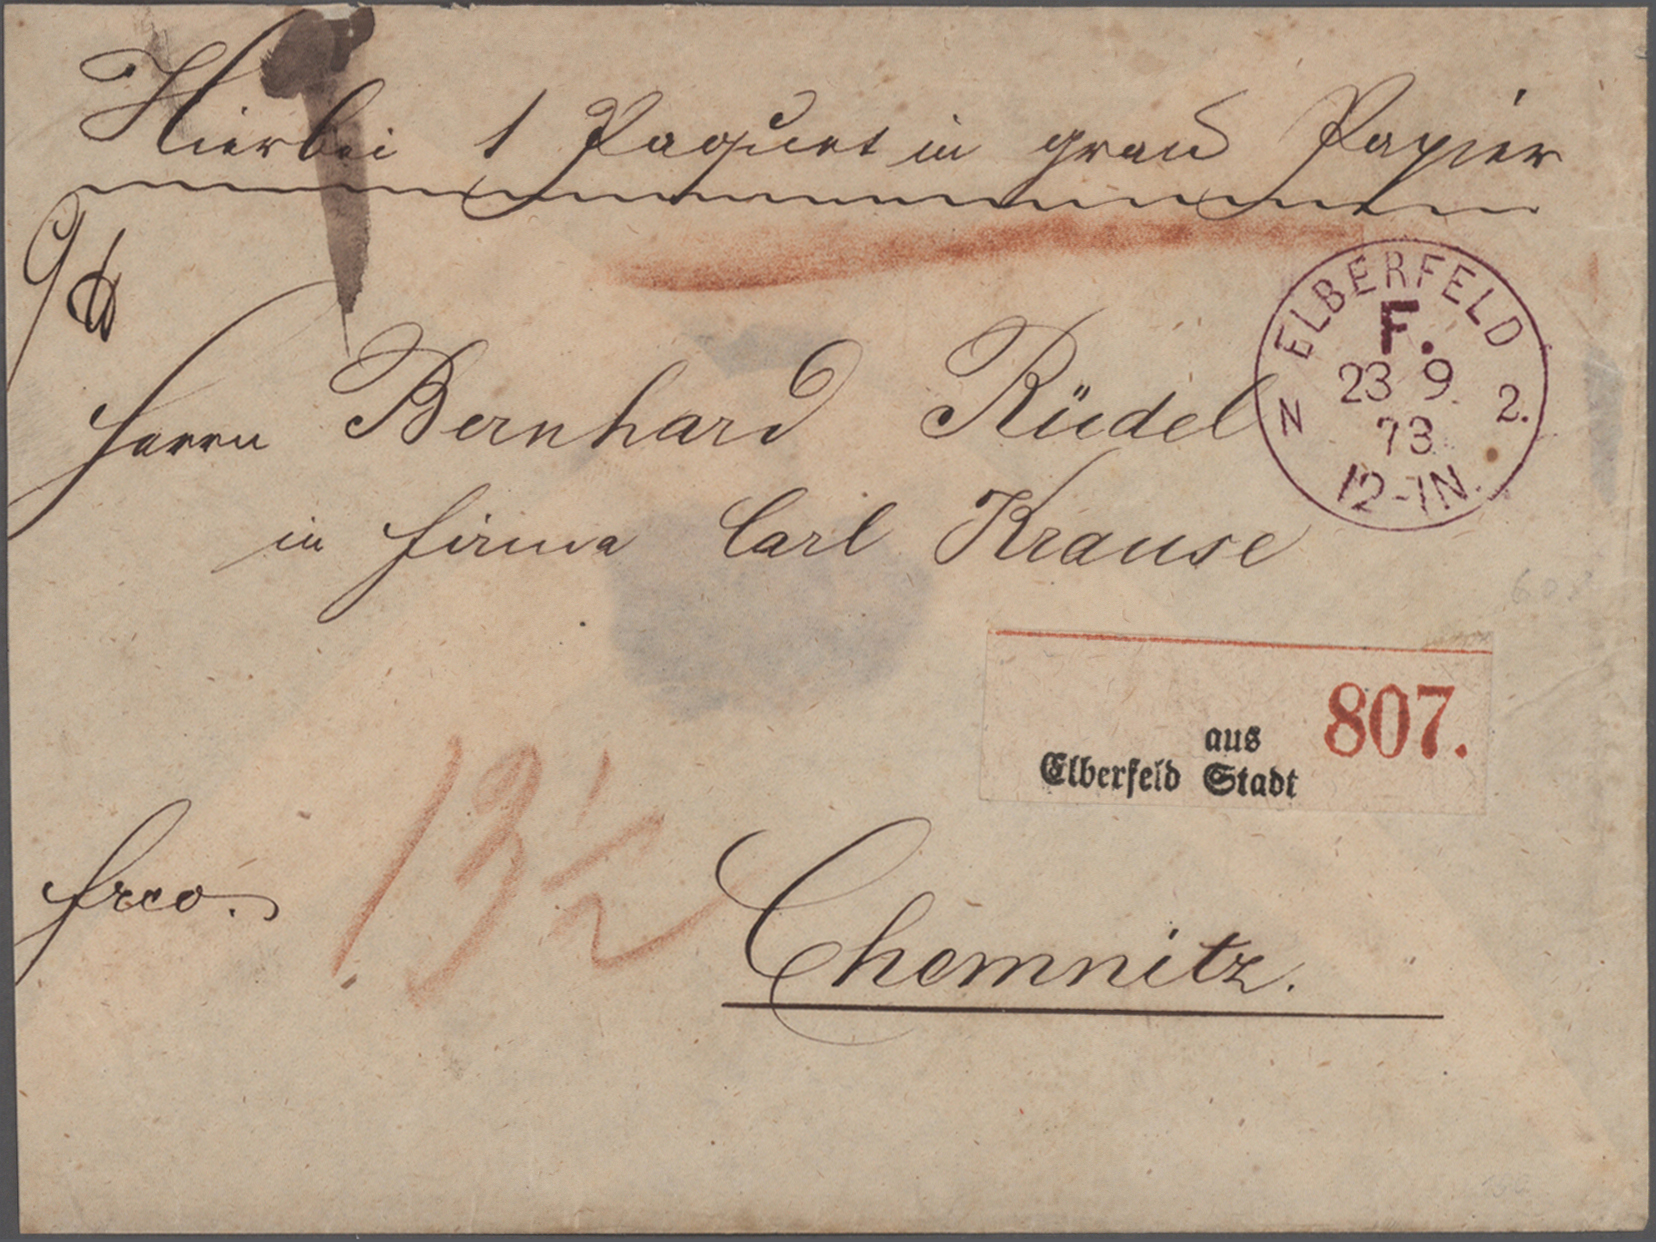 Hierbei 1 Paquet in grau Papier
ELBERFELD
F.
23 9
73
N 2.
12-1N.
Herrn Bernhard Rüdel
in Firma Carl Krause
807.
aus
Elberfeld Stadt
frco.
13 1/2
Chemnitz.